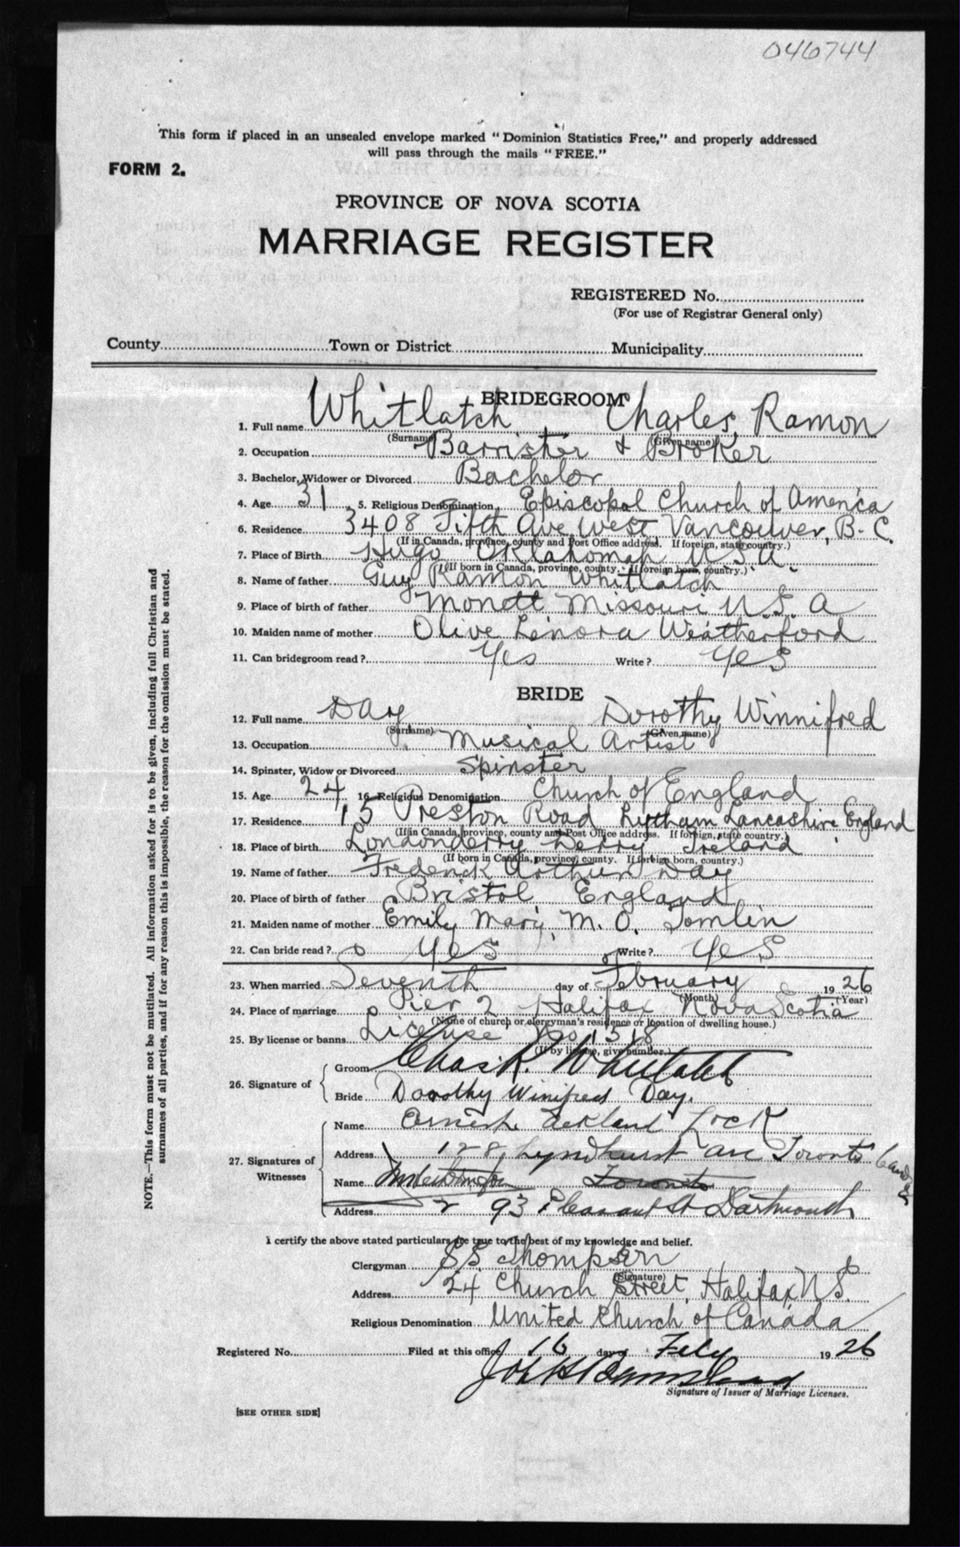 046744
This form if placed in an unsealed envelope marked "Dominion Statistics Free," and properly addressed
will pass through the mails "FREE."
FORM 2.
PROVINCE OF NOVA SCOTIA
MARRIAGE REGISTER
REGISTERED No.
(For use of Registrar General only)
County Town or District Municipality
BRIDEGROOM
1. Full name Whitlatch Charles Ramon
(Surname) (Given name)
2. Occupation Barrister & Broker
3. Bachelor, Widower or Divorced Bachelor
4. Age 31 5. Religious Denomination Episcopal Church of America
6. Residence 3408 Fifth Ave West Vancouver, B-C.
(If in Canada, province, county and Post Office address. If foreign, state country.)
7. Place of Birth Hugo Oklahomah U.S.A.
(If born in Canada, province, county. If foreign born, country.)
8. Name of father Guy Ramon Whitlatch
9. Place of birth of father Monett Missouri U.S.A
10. Maiden name of mother Olive Lenora Weatherford
11. Can bridegroom read? Yes Write? Yes
BRIDE
12. Full name Day Dorothy Winnifred
(Surname) (Given name)
13. Occupation Musical Artist
14. Spinster, Widow or Divorced Spinster
15. Age 24 16. Religious Denomination Church of England
17. Residence 15 Preston Road Lytham Lancashire England
(If in Canada, province, county and Post Office address. If foreign, state country.)
18. Place of birth Londonderry Derry Ireland
(If born in Canada, province, county. If foreign born, country.)
19. Name of father Frederick Arthur Day
20. Place of birth of father Bristol England
21. Maiden name of mother Emily Mary M. O. Tomlin
22. Can bride read? Yes Write? Yes
23. When married Seventh day of February 1926
(Month) (Year)
24. Place of marriage Pier 2 Halifax Nova Scotia
(Name of church or clergyman's residence or location of dwelling house.)
25. By license or banns License No. 1318
(If by license, give number.)
26. Signature of
Groom Chas R. Whitlatch
Bride Dorothy Winifred Day.
27. Signatures of Witnesses
Name Ernest Lock
Address 128 Lyndhurst ave Toronto Canada
Name Toronto
Address 93 Pleasant St Dartmouth
I certify the above stated particulars are true to the best of my knowledge and belief.
Clergyman Thompson
(Signature)
Address 24 Church Street, Halifax N.S.
Religious Denomination United Church of Canada
Registered No. Filed at this office 16 day Feby 1926
Signature of Issuer of Marriage Licenses.
[SEE OTHER SIDE]
NOTE.—This form must not be mutilated. All information asked for is to be given, including full Christian and
surnames of all parties, and if for any reason this is impossible, the reason for the omission must be stated.